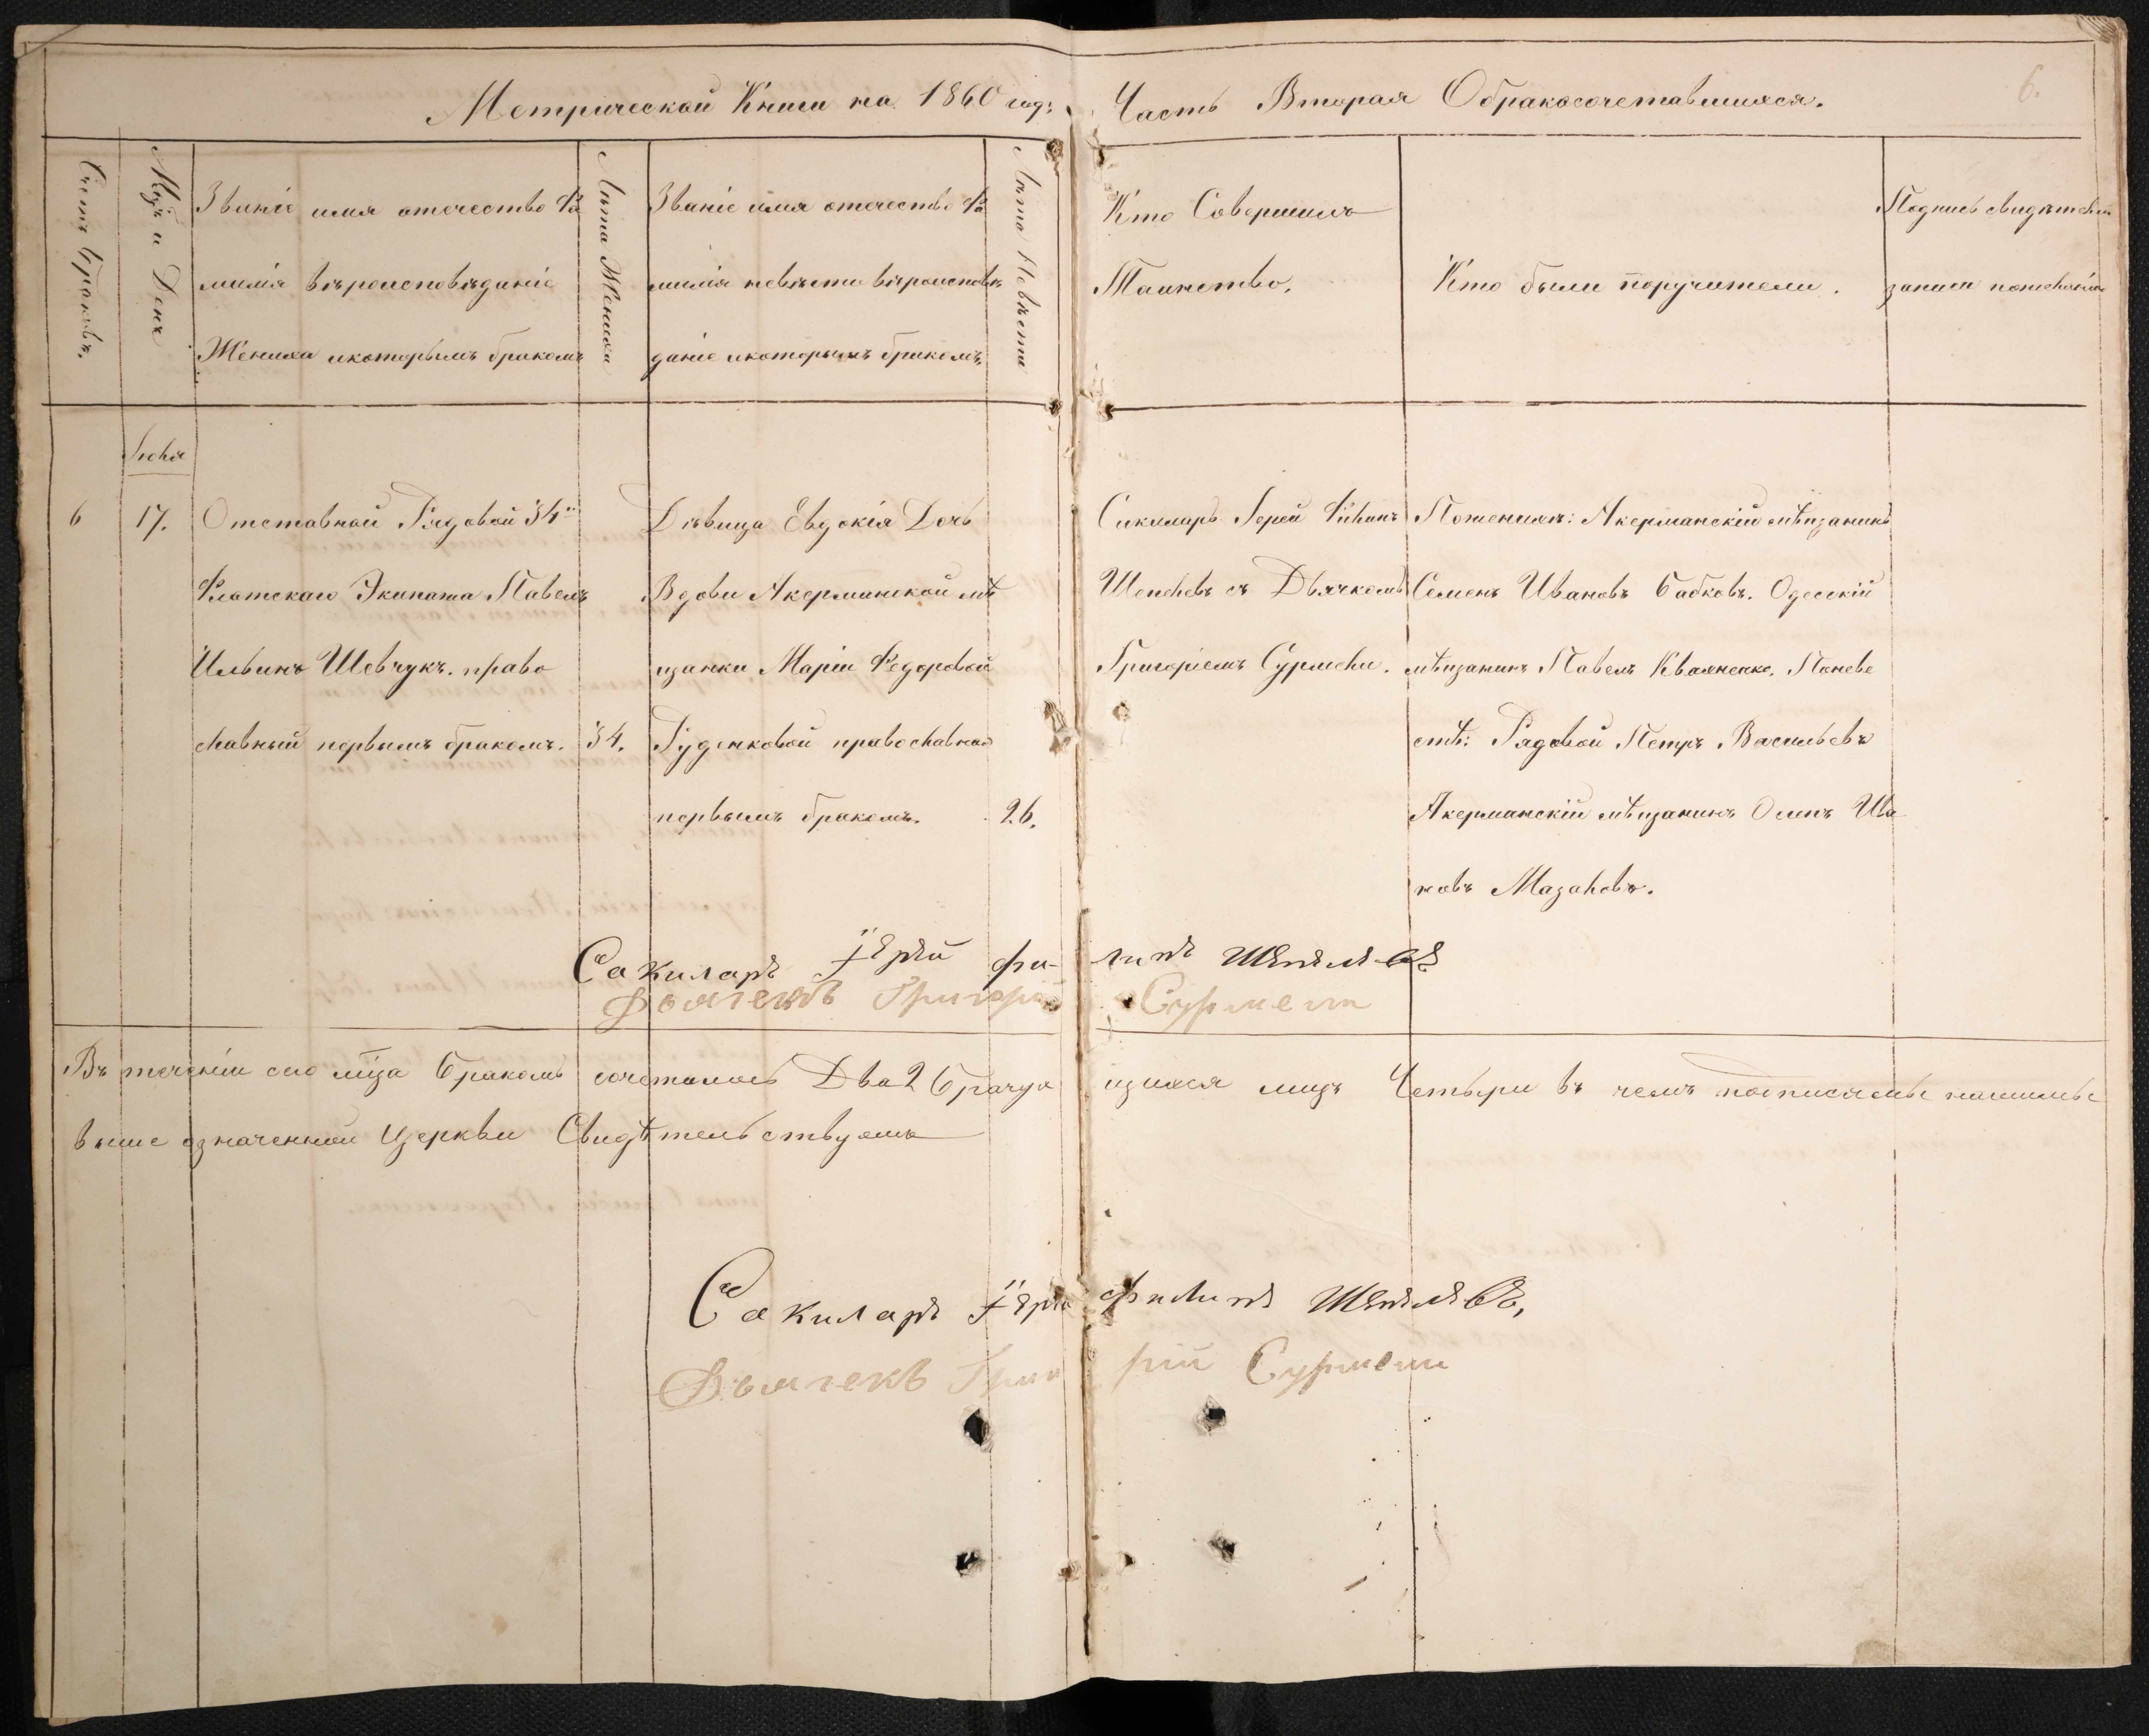 Метрической Книги на 1860 год: Часть Вторая О бракосочетавшихся.
6.
Счетъ браковъ.
Мѣзъ и День
Званіе имя отечество Фа
милія вѣроисповѣданіе
Жениха и которымъ бракомъ
Лѣта Жениха
Званіе имя отечество Фа
милія невѣсты вѣроисповѣ
даніе и которымъ бракомъ.
Лѣта Невѣсты
Кто Совершилъ
Таинство.
Кто были поручители.
Подпись свидѣтелей
записи по желанію
Іюля
6
17.
Отставной Рядовой 34го
Флотскаго Экипажа Павелъ
Ильинъ Шевчукъ. право
славный первымъ бракомъ.
34.
Дѣвица Евдокія Дочь
Вдовы Акерманской мѣ
щанки Маріи Федоровой
Руденковой православная
первымъ бракомъ.
26.
Сакиларъ Іерей Филипъ
Шепелевъ съ Дьячкомъ
Григоріемъ Сурмели.
По женихѣ: Акерманскій мѣщанинъ
Семенъ Ивановъ Бабковъ. Одесскій
мѣщанинъ Павелъ Квашненко. По неве
стѣ: Рядовой Петръ Васильевъ
Акерманскій мѣщанинъ Осипъ Ива
новъ Мазановъ.
Сакиларъ Іерей Филипъ Шепелевъ
Дьячекъ Григорій Сурмели
Въ теченіи сего мѣца бракомъ сочеталось Два 2 брачу ющихся лицъ Четыри въ чемъ подписаемъ нашимъ
выше означенной Церкви Свидѣтельствуемъ
Сакиларъ Іерей Филипъ Шепелевъ,
Дьячекъ Григорій Сурмели